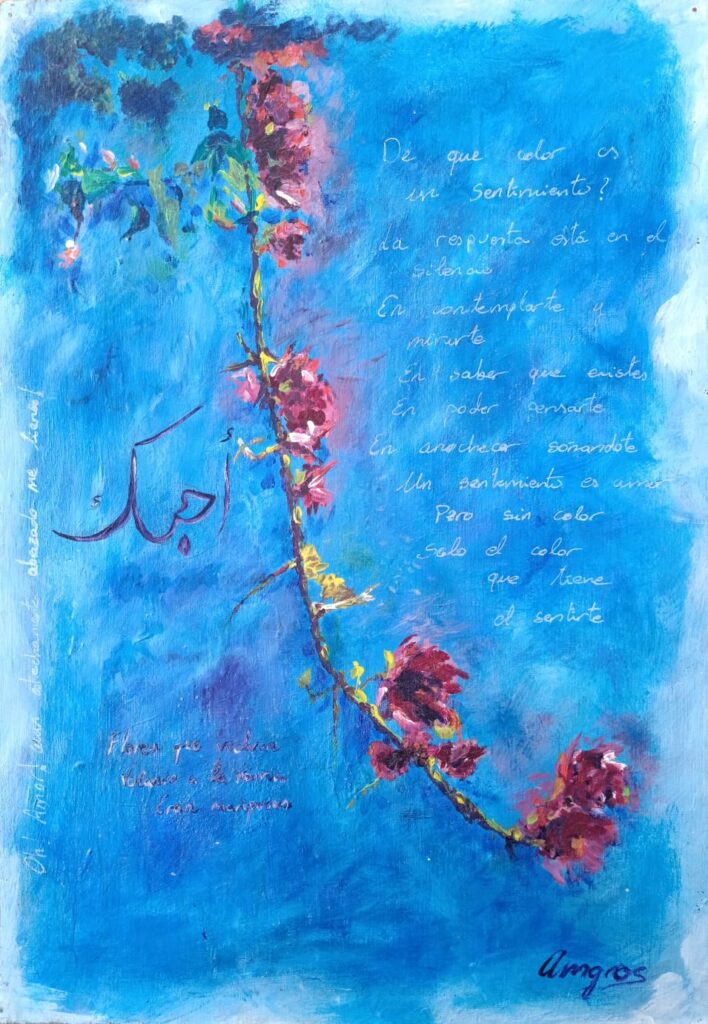 De que color es
un sentimiento?
La respuesta está en el
silencio
En contemplarte y
mirarte
En saber que existes
En poder pensarte
En anochecer soñandote
Un sentimiento es amor
Pero sin color
Solo el color
que tiene
el sentirte
أحبك
Oh! Amor! aun estrechamente abazado me tienes!
Flores que
a la rama
Eran mariposas
Amgros